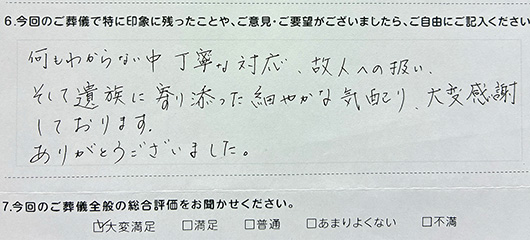 6.今回のご葬儀で特に印象に残ったことや、ご意見・ご要望がございましたら、ご自由にご記入ください
何もわからない中 丁寧な対応、故人への扱い、
そして遺族に寄り添った細やかな気配り、大変感謝
しております。
ありがとうございました。
7.今回のご葬儀全般の総合評価をお聞かせください。
☑大変満足 □満足 □普通 □あまりよくない □不満